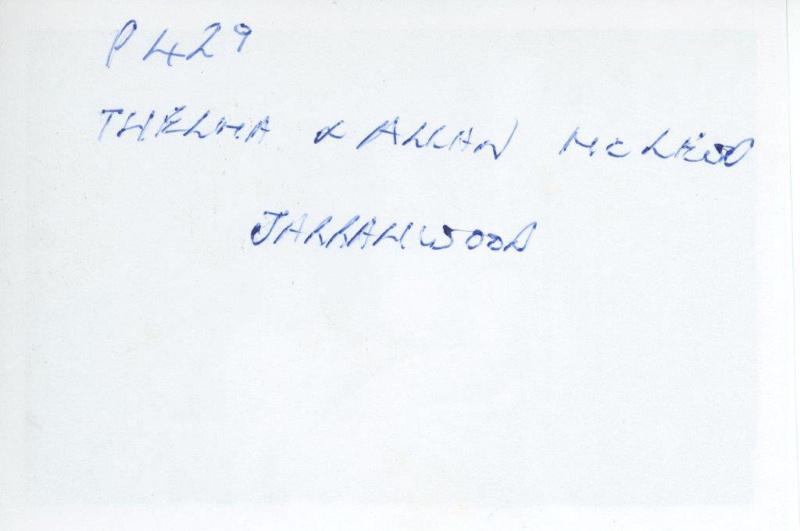 P429
THELMA & ALLAN McLEOD
JARRAHWOOD